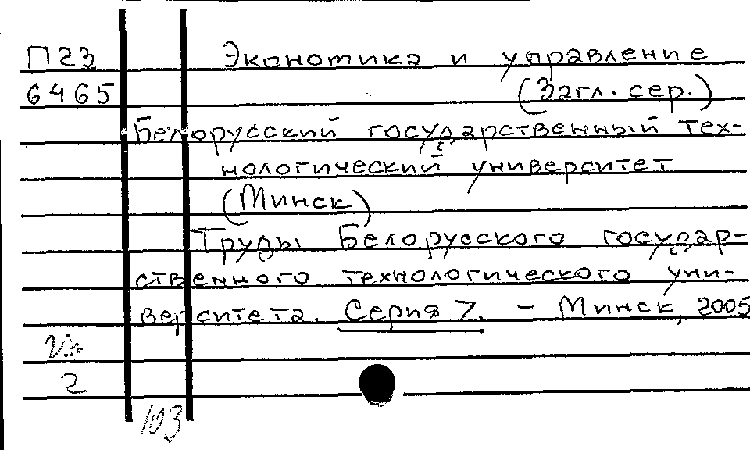 П23 Экономика и управление
6465 (Загл. сер.)
Белорусский государственный тех-
нологический университет
(Минск)
Труды Белорусского государ-
ственного технологического уни-
верситета. Серия 7. - Минск, 2005
2
103